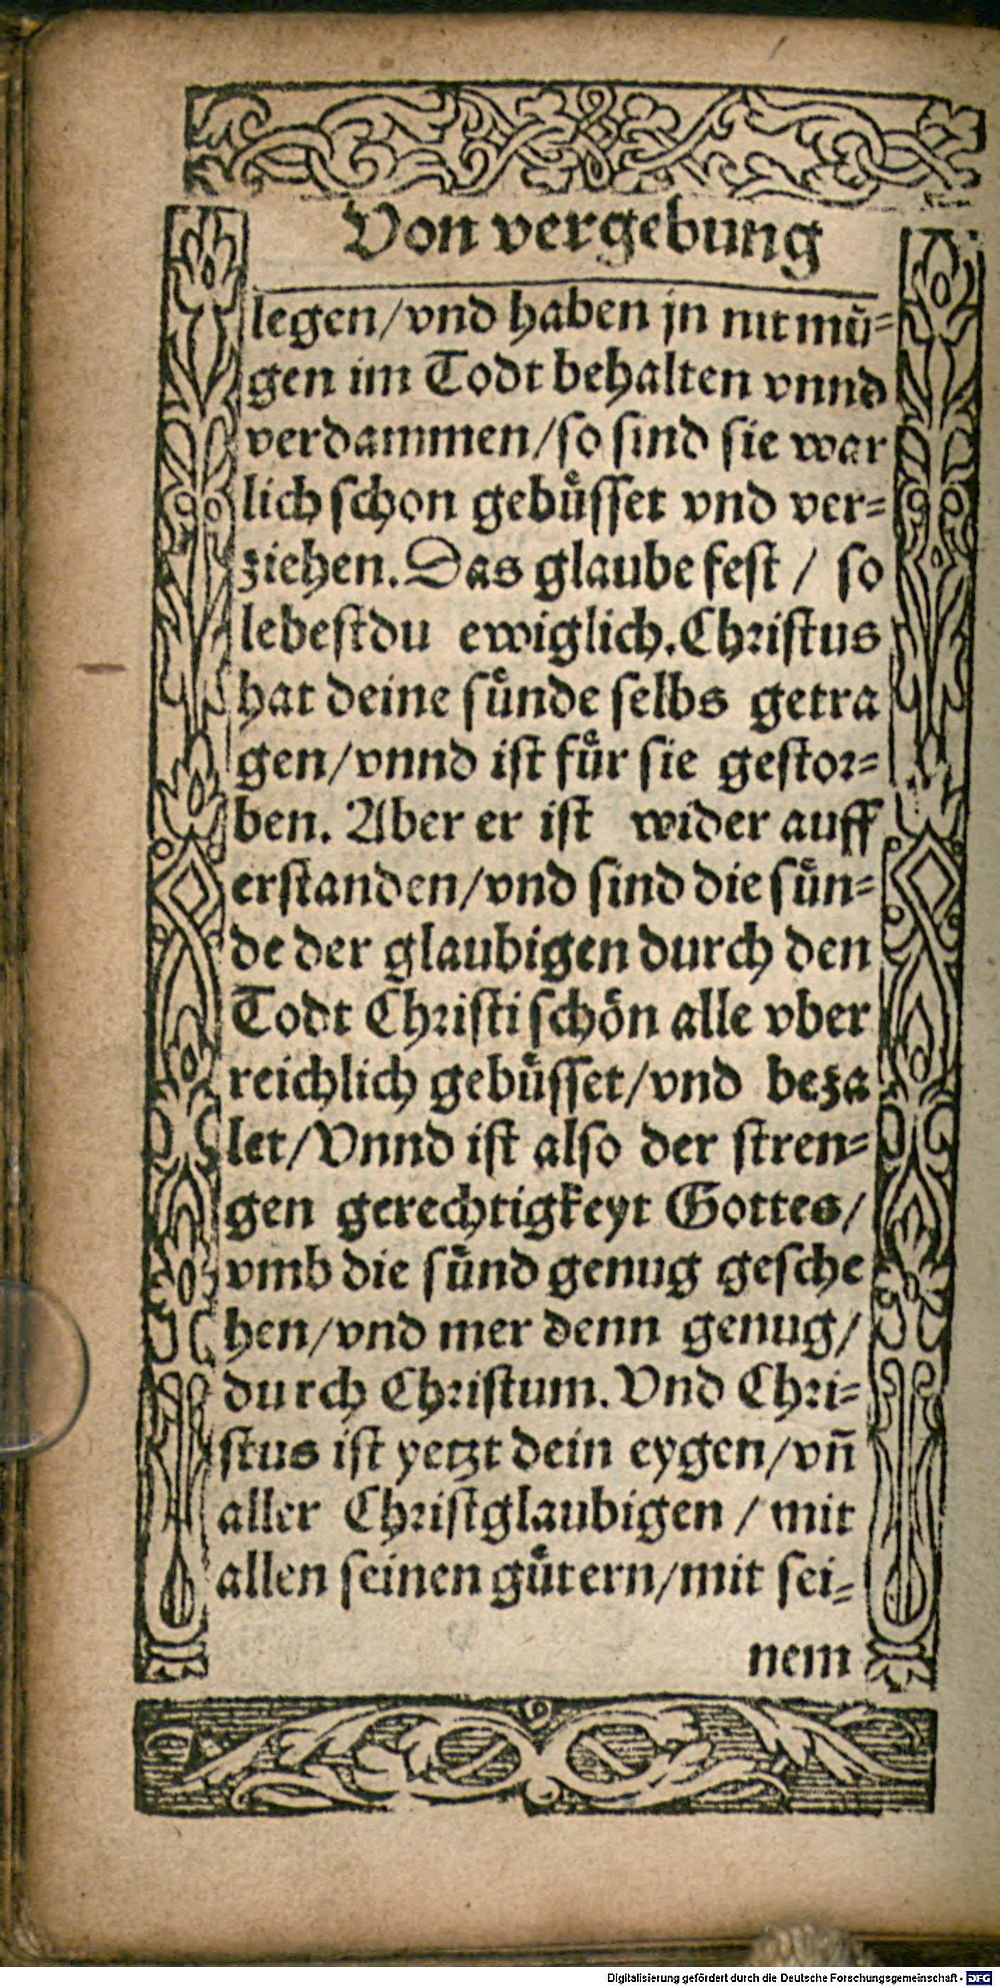 Von vergebung
legen/vnd haben jn nit mü-
gen im Todt behalten vnnd
verdammen/so sind sie war
lich schon gebuͤsset vnd ver-
ziehen. Das glaube fest / so
lebestdu ewiglich. Christus
hat deine suͤnde selbs getra
gen/vnnd ist fuͤr sie gestor-
ben. Aber er ist wider auff
erstanden/vnd sind die suͤn-
de der glaubigen durch den
Todt Christi schoͤn alle vber
reichlich gebuͤsset/vnd beza
let/Vnnd ist also der stren-
gen gerechtigkeyt Gottes/
vmb die suͤnd genug gesche
hen/vnd mer denn genug/
durch Christum. Vnd Chri-
stus ist yetzt dein eygen/vn̄
aller Christglaubigen / mit
allen seinen guͤtern/mit sei-
nem
Digitalisierung gefördert durch die Deutsche Forschungsgemeinschaft - DFG